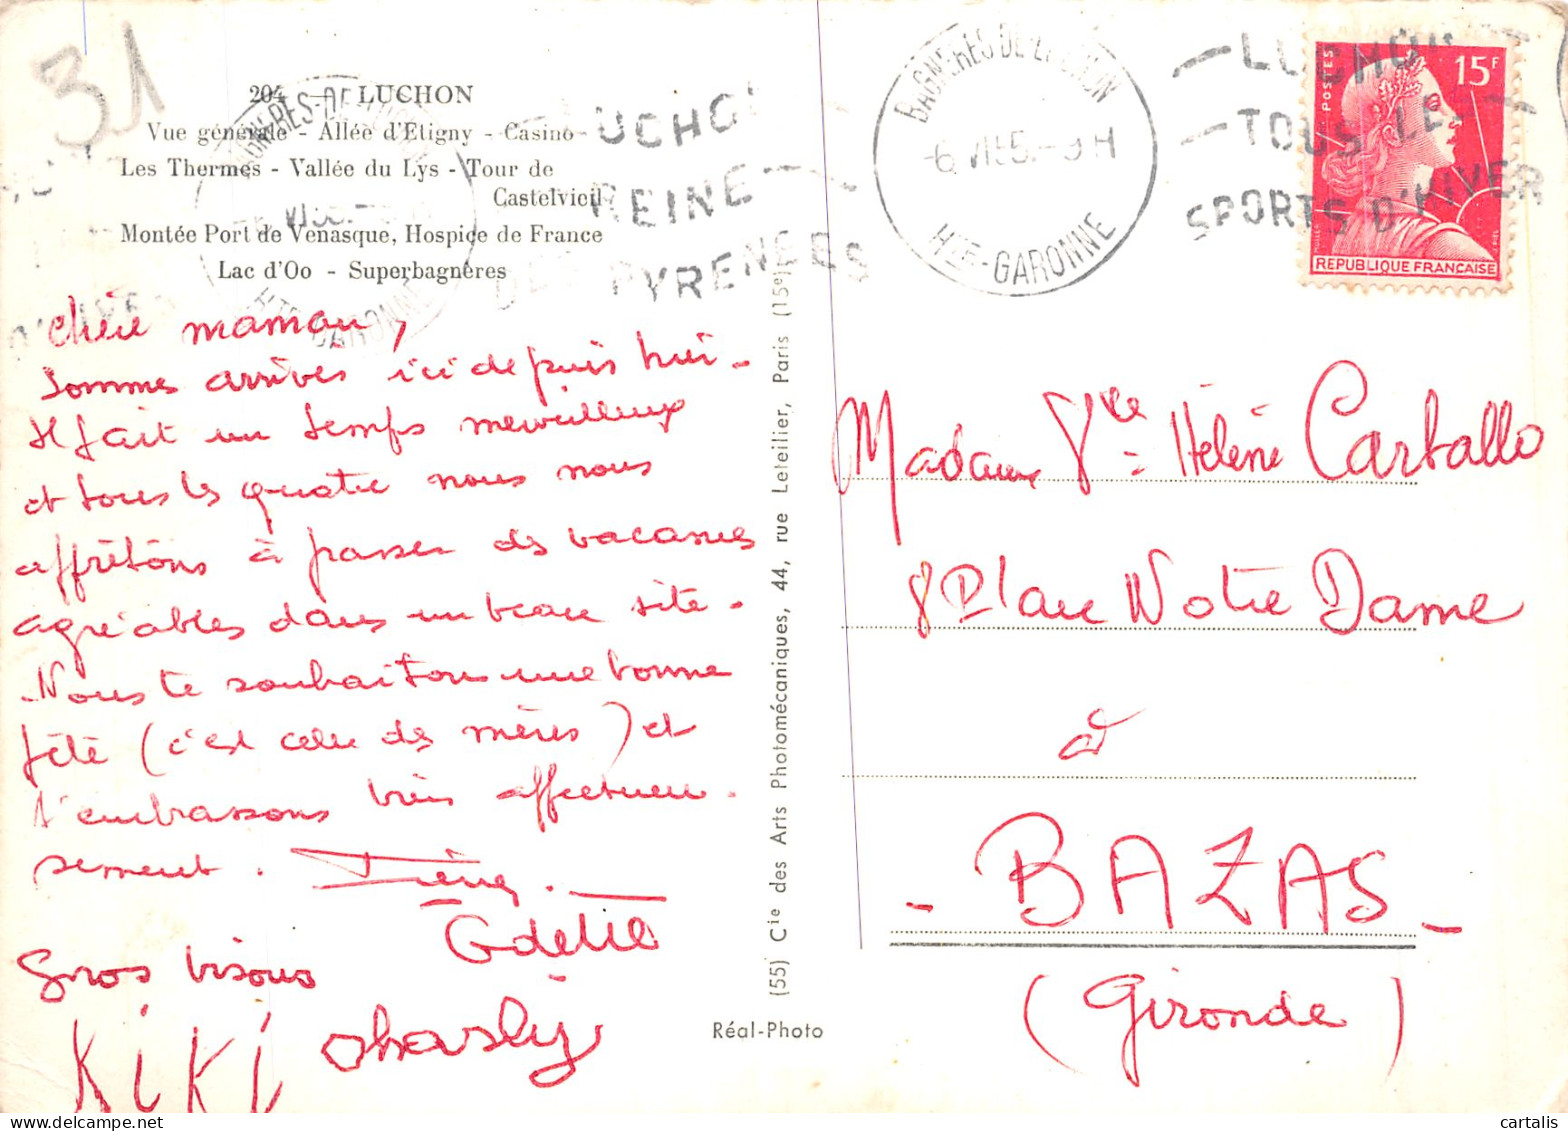 31
204 — LUCHON
Vue générale - Allée d'Etigny - Casino
Les Thermes - Vallée du Lys - Tour de
Castelvieil
Montée Port de Venasque, Hospice de France
Lac d'Oo - Superbagnères
LUCHON
REINE
DES PYRENEES
BAGNERES-DE-LUCHON
HTE-GARONNE
BAGNERES DE LUCHON
HTE-GARONNE
LUCHON
TOUS LES
SPORTS D'HIVER
POSTES
15F
REPUBLIQUE FRANCAISE
chère maman,
Sommes arrivés ici depuis hier -
Il fait un temps merveilleux
et tous les quatre nous nous
apprêtons à passer des vacances
agréables dans un beau site -
Nous te souhaitons une bonne
fête (c'est celle des mères) et
t'embrassons très affectueu-
sement.
Odette
Gros bisous
KIKI Charly
(55) Cie des Arts Photomécaniques, 44, rue Letellier, Paris (15e)
Réal-Photo
Madame Vve Hélène Carballo
8 Place Notre Dame
à
- BAZAS -
(Gironde)
cartalis